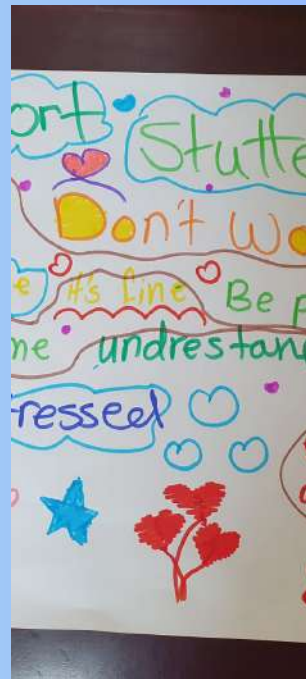 ort Stutte
Don't Wo
e it's fine Be p
me undrestan
ressed